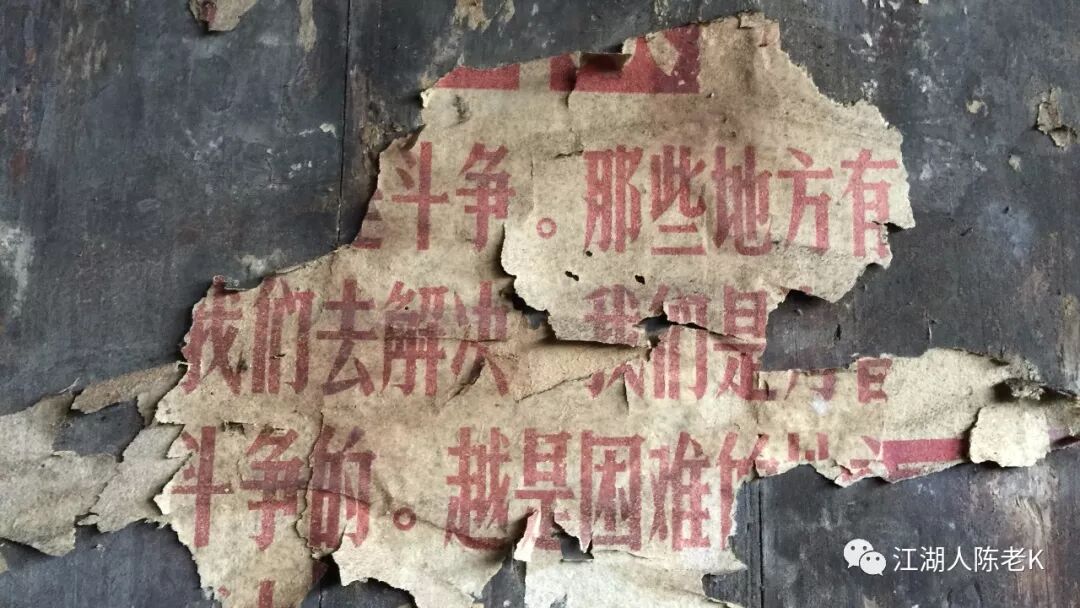 斗争。那些地方有
我们去解决 我们是为
斗争的。越是困难的地
江湖人陈老K